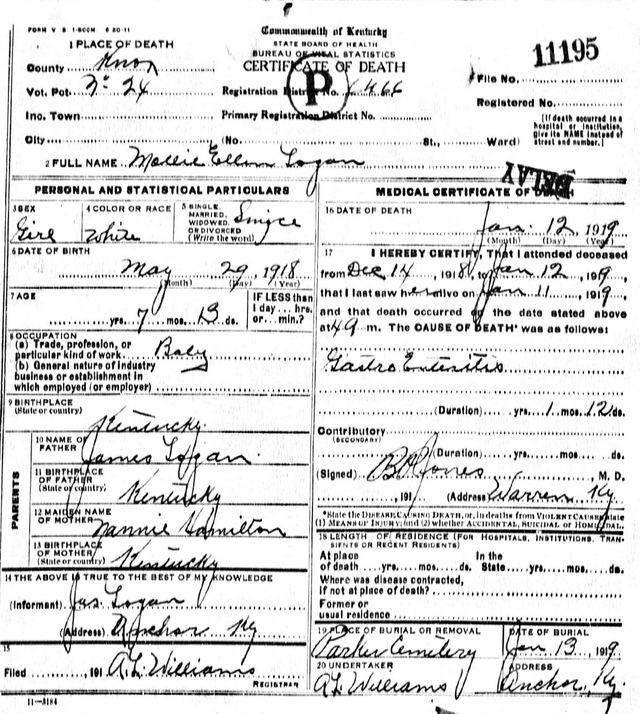 FORM V S 1-500M 6 20-11
Commonwealth of Kentucky
STATE BOARD OF HEALTH
BUREAU OF VITAL STATISTICS
CERTIFICATE OF DEATH
11195
1 PLACE OF DEATH
County Knox
Vot. Pct. No 24
Inc. Town
City
(No. St., Ward)
Registration District No. 6466
Primary Registration District No.
P
File No.
Registered No.
[If death occurred in a hospital or institution, give its NAME instead of street and number.]
2 FULL NAME Mollie Ellen Logan
DELAY
PERSONAL AND STATISTICAL PARTICULARS
3 SEX
Girl
4 COLOR OR RACE
White
5 SINGLE, MARRIED, WIDOWED, OR DIVORCED (Write the word)
Single
6 DATE OF BIRTH
May 29, 1918
(Month) (Day) (Year)
7 AGE
yrs. 7 mos. 13 ds.
IF LESS than 1 day... hrs. or... min.?
8 OCCUPATION
(a) Trade, profession, or particular kind of work Baby
(b) General nature of industry business or establishment in which employed (or employer)
9 BIRTHPLACE
(State or country)
Kentucky
PARENTS
10 NAME OF FATHER
James Logan
11 BIRTHPLACE OF FATHER (State or country)
Kentucky
12 MAIDEN NAME OF MOTHER
Nannie Hamilton
13 BIRTHPLACE OF MOTHER (State or country)
Kentucky
14 THE ABOVE IS TRUE TO THE BEST OF MY KNOWLEDGE
(Informant) Jas Logan
(Address) Anchor Ky
15
Filed 191 A L Williams
REGISTRAR
11-3184
MEDICAL CERTIFICATE OF DEATH
16 DATE OF DEATH
Jan. 12, 1919
(Month) (Day) (Year)
17 I HEREBY CERTIFY, That I attended deceased
from Dec 14 1918, to Jan 12, 1919,
that I last saw her alive on Jan 11, 1919,
and that death occurred on the date stated above
at 4 9 m. The CAUSE OF DEATH* was as follows:
Gastro Enteritis
(Duration) yrs. 1 mos. 12 ds.
Contributory
(SECONDARY)
(Duration) yrs. mos. ds.
(Signed) Jones, M. D.
, 191 (Address) Warren Ky
*State the DISEASE CAUSING DEATH, or, in deaths from VIOLENT CAUSES state (1) MEANS OF INJURY; and (2) whether ACCIDENTAL, SUICIDAL OR HOMICIDAL.
18 LENGTH OF RESIDENCE (FOR HOSPITALS, INSTITUTIONS, TRANSIENTS OR RECENT RESIDENTS)
At place of death yrs. mos. ds. In the State yrs. mos. ds.
Where was disease contracted, if not at place of death?
Former or usual residence
19 PLACE OF BURIAL OR REMOVAL
Parker Cemetery
DATE OF BURIAL
Jan 13, 1919
20 UNDERTAKER
A L Williams
ADDRESS
Anchor, Ky.